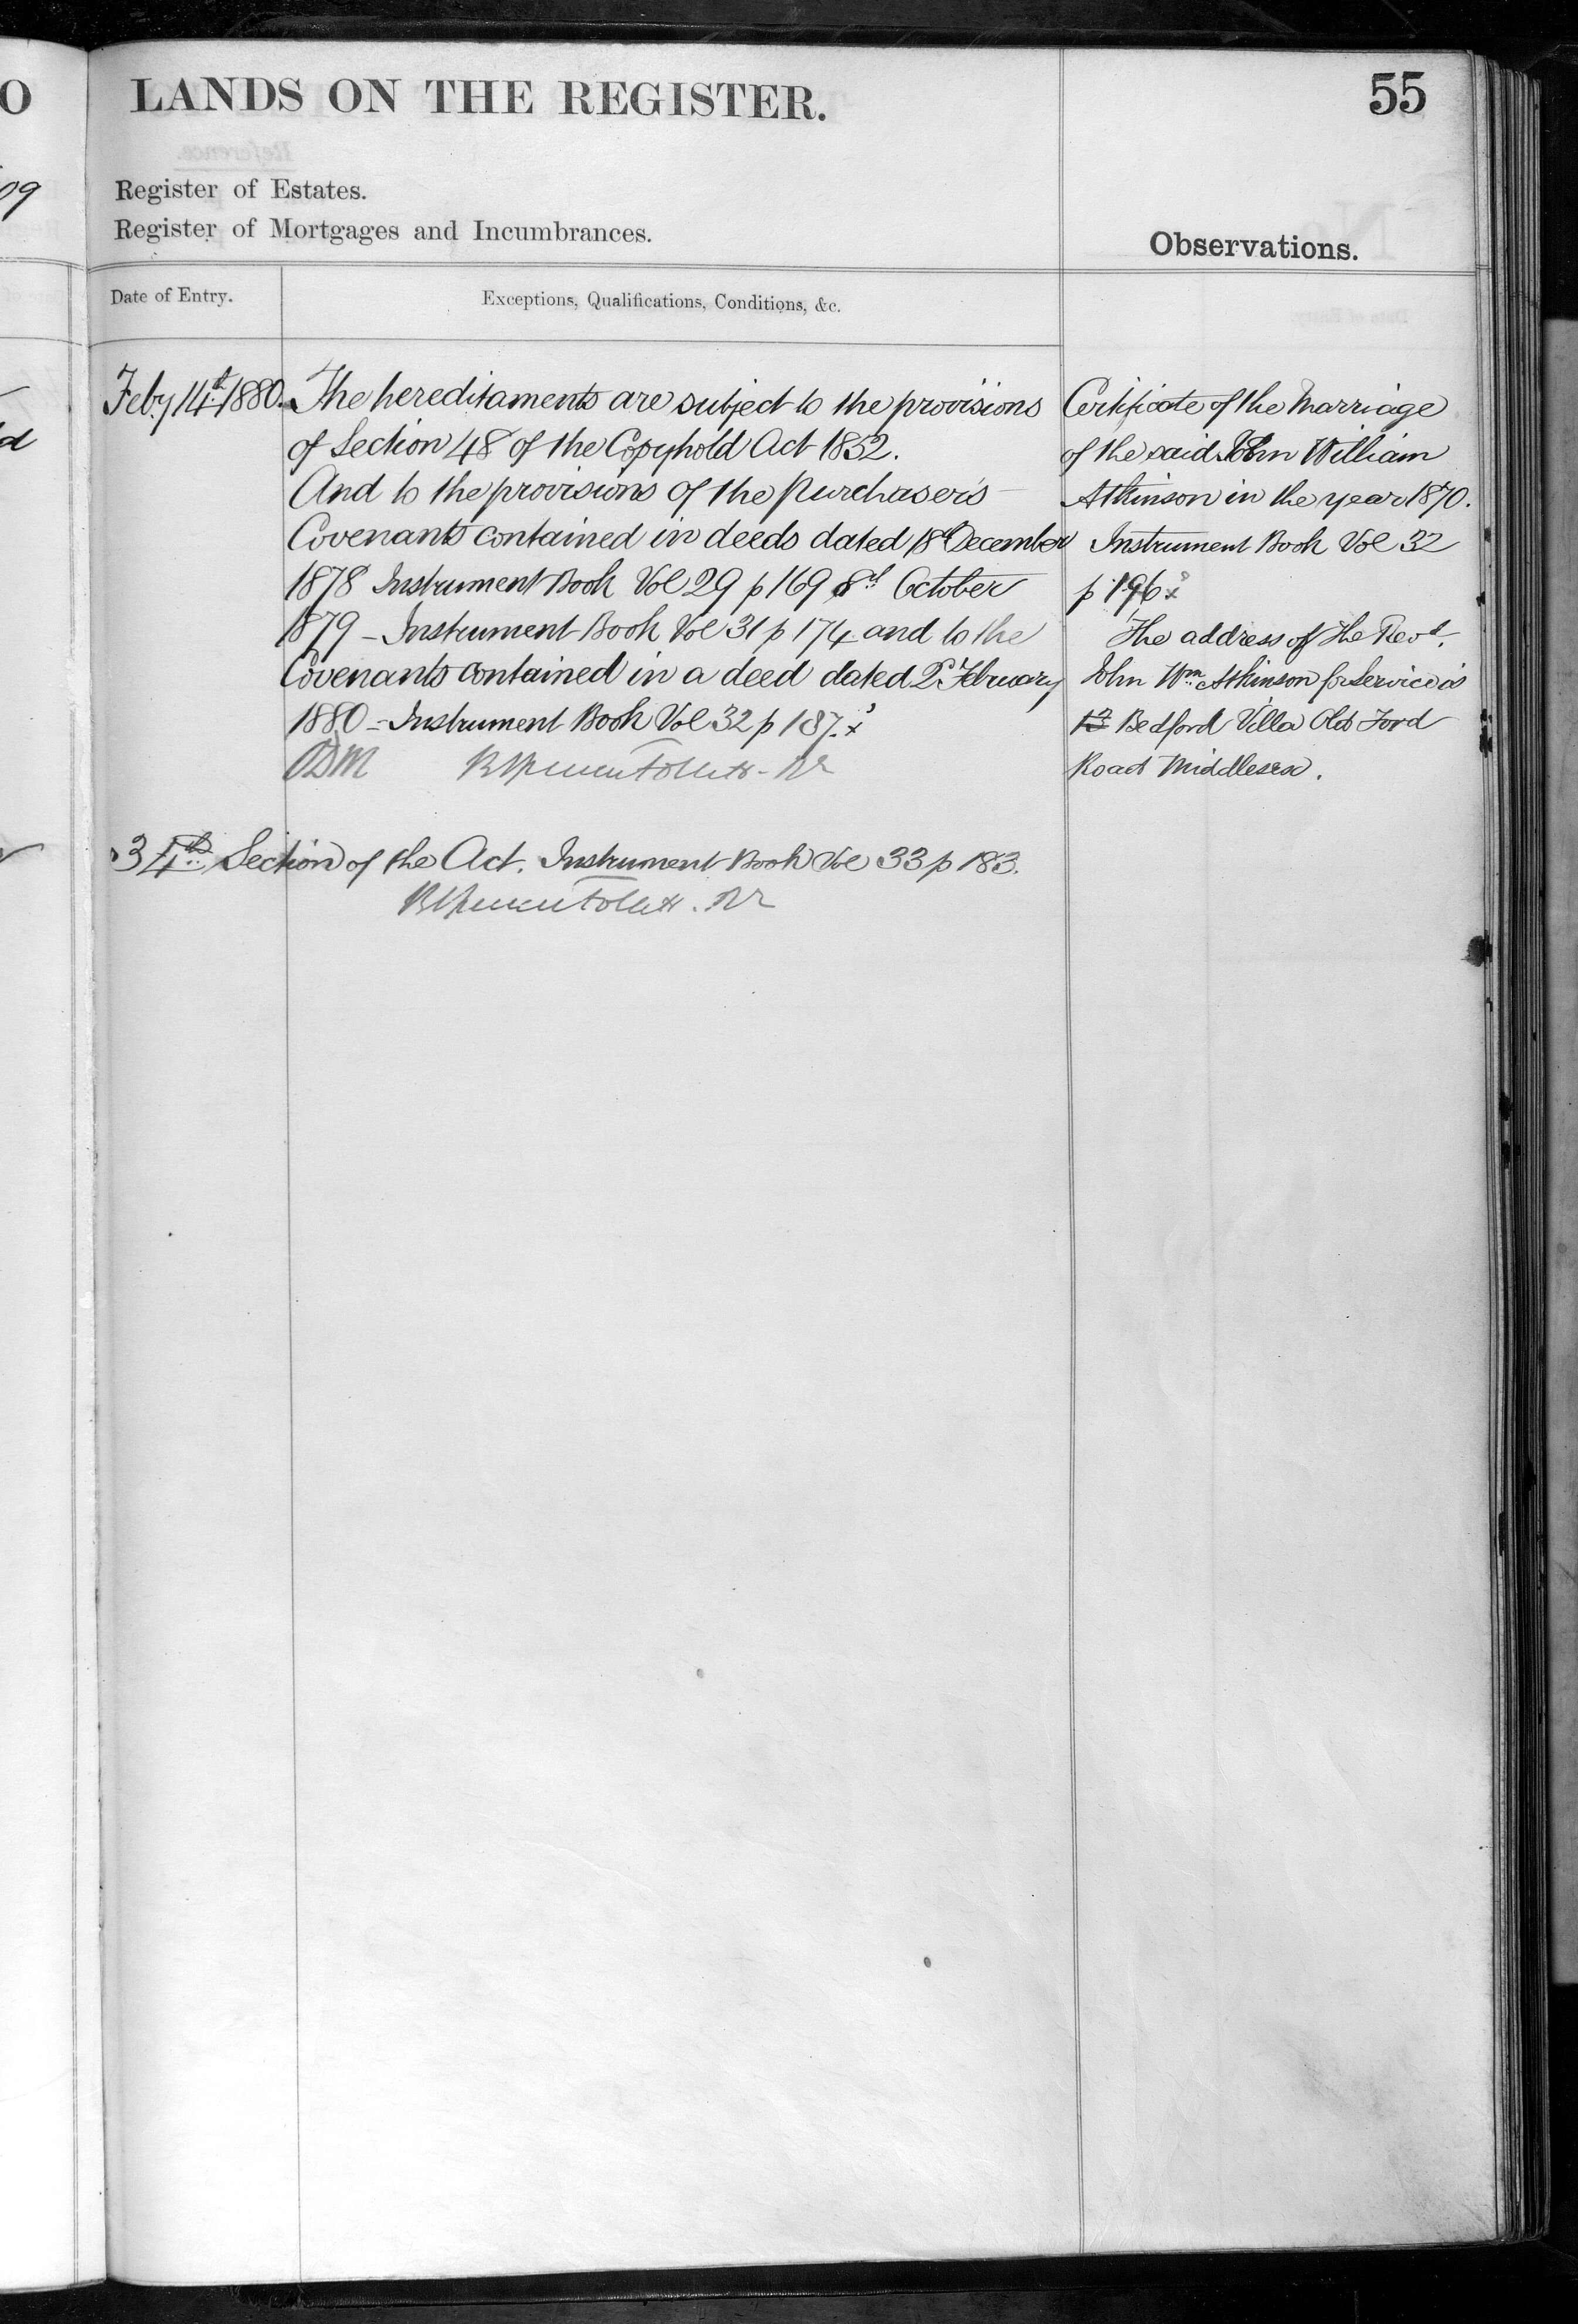 O
LANDS ON THE REGISTER.
55
09
Register of Estates.
Register of Mortgages and Incumbrances.
Observations.
Date of Entry.
Exceptions, Qualifications, Conditions, &c.
Feby 14th 1880.
The hereditaments are subject to the provisions
of Section 48 of the Copyhold Act 1852.
And to the provisions of the purchasers
Covenants contained in deeds dated 18th December
1878 Instrument Book Vol 29 p 169 8th October
1879 - Instrument Book Vol 31 p 174 and to the
Covenants contained in a deed dated 2d February
1880 - Instrument Book Vol 32 p 187. x
Certificate of the Marriage
of the said John William
Atkinson in the year 1870.
Instrument Book Vol 32
p 196 x
The address of the Revd.
John Wm. Atkinson for service is
13 Bedford Villa Old Ford
Road Middlesex.
34th Section of the Act. Instrument Book Vol 33 p 183.